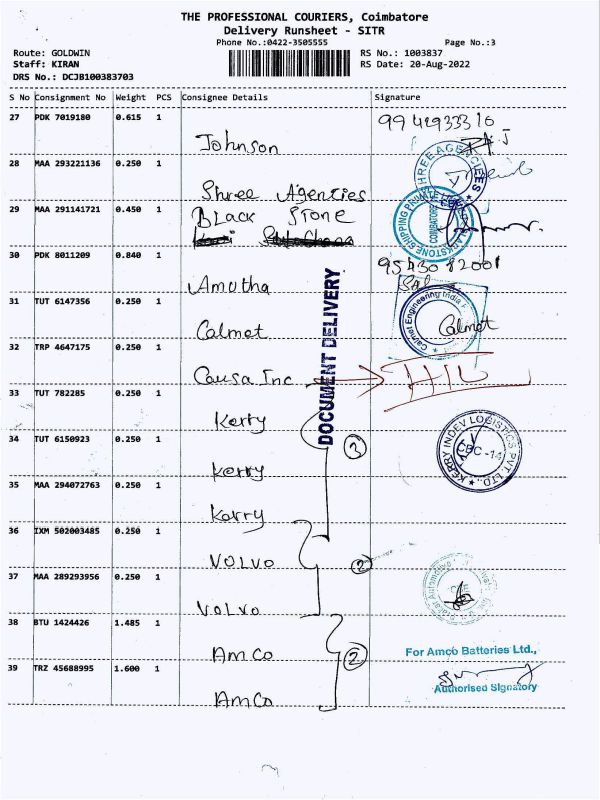 THE PROFESSIONAL COURIERS, Coimbatore
Delivery Runsheet - SITR
Phone No.:0422-3505555 Page No.:3
Route: GOLDWIN RS No.: 1003837
Staff: KIRAN RS Date: 20-Aug-2022
DRS No.: DCJB100383703
S No Consignment No Weight PCS Consignee Details Signature
27 PDK 7019180 0.615 1
Johnson
28 MAA 293221136 0.250 1
Shree Agencies
THREE AGENCIES
29 MAA 291141721 0.450 1
Black Stone
BLACKSTONE SHIPPING PRIVATE
COIMBATORE
30 PDK 8011209 0.840 1
Amutha
31 TUT 6147356 0.250 1
Calmet
Calmet Engineering India
Calmet
32 TRP 4647175 0.250 1
Causa Inc
DOCUMENT DELIVERY
33 TUT 782285 0.250 1
Kerry
34 TUT 6150923 0.250 1
Kerry
3
KERRY INDEV LOGISTICS PVT. LTD.,
CBC -14
35 MAA 294072763 0.250 1
Kerry
36 IXM 502003485 0.250 1
VOLVO
2
37 MAA 289293956 0.250 1
VOLVO
38 BTU 1424426 1.485 1
Amco
2
For Amco Batteries Ltd.,
39 TRZ 45688995 1.600 1
Authorised Signatory
Amco